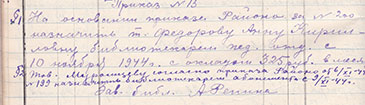 Приказ № 13
51 На основании приказа Районо за № 200
назначить т. Федорову Анну Кирил-
ловну библиотекарем пед. отд. с
10 ноября 1944 г. с окладом 325 руб. в месяц
52 Тов. согласно приказа Районо
№ 199 назначить библиотекарем абонемента с
Зав. библ. А Репина